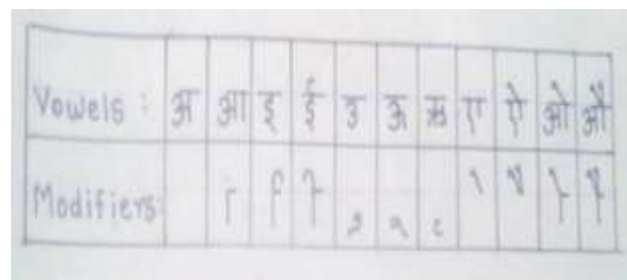 Vowels : अ आ इ ई उ ऊ ऋ ए ऐ ओ औ
Modifiers: ा ि ी ु ू ृ े ै ो ौ